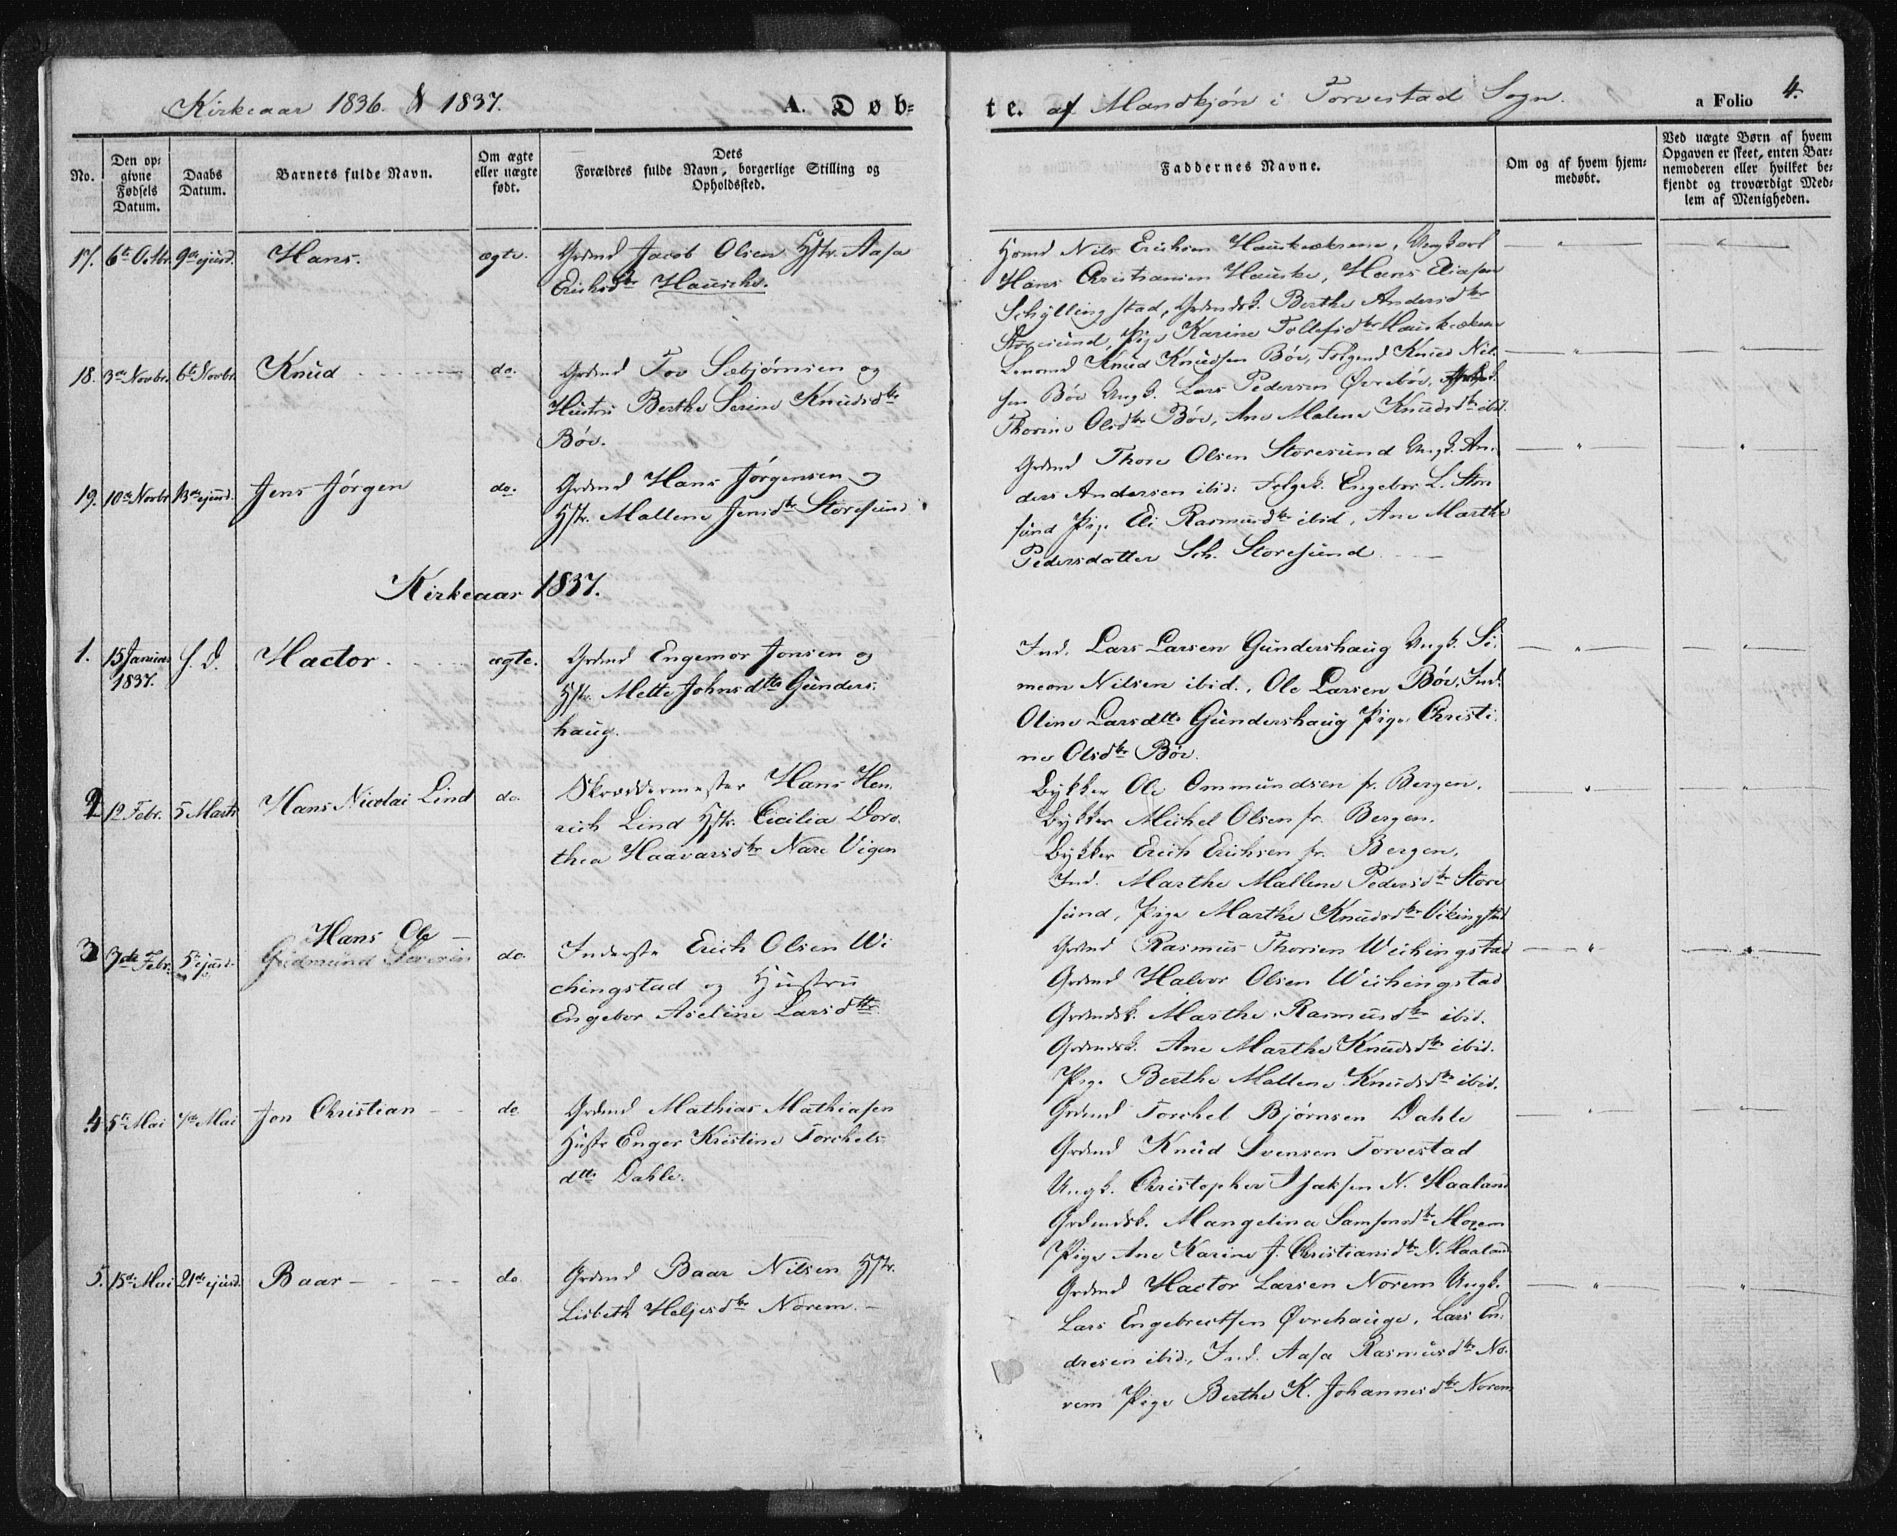 Kirkeaar 1836 & 1837. A. Døb-
te. af Mandkjøn i Torvestad Sogn. a Folio 4.
No.
Den op-
givne
Fødsels
Datum.
Daabs
Datum.
Barnets fulde Navn.
Om ægte
eller uægte
født.
Dets
Forældres fulde Navn, borgerlige Stilling og
Opholdssted.
Faddernes Navne.
Om og af hvem hjem-
medøbt.
Ved uægte Børn af hvem
Opgaven er skeet, enten Bar-
nemoderen eller hvilket be-
kjendt og troværdigt Med-
lem af Menigheden.
17. 6te Octbr. 9de ejusd. Hans. ægte. Grdmd Jacob Olsen Hstr. Aasa
Erichsdtr Hauske.
Nils Erichsen
Hans Christiansen Hauske, Hans Eliasen
Schyllingstad, Grdmdsk. Berthe Andersdtr
Storesund, Pige Karine Tollefsdtr
18. 3die Novbr. 6te Novbr. Knud do. Grdmd Tov Sæbjørnsen og
Hustru Berthe Serine Knudsdtr
Bøe.
Lensmd Knud Knudsen Bøe, Folgemd Knud Nil-
sen Bøe Ungk. Lars Pedersen Øvrebøe,
Thorine Olsdtr Bøe, Ane Malene Knudsdtr ibid.
19. 10de Novbr. 13de ejusd. Jens Jørgen do. Grdmd Hans Jørgensen og
Hstr. Mallene Jensdtr Storesund.
Grdmd Thore Olsen Storesund Ungk. An-
ders Andersen ibid: Folgek. Engebor L. Store
sund Pige Eli Rasmusdtr ibid, Ane Marthe
Pedersdatter Sch. Storesund
Kirkeaar 1837.
1. 15 Januar
1837. s. D. Hactor. ægte. Grdmd Engemor Jonsen og
Hstr. Mette Johnsdtr Gunders-
haug.
Ind. Lars Larsen Gundershaug Ungk. Si-
meon Nilsen ibid., Ole Larsen Bøe, Ind.
Oline Larsdtr Gundershaug Pige Christi-
ne Olsdtr Bøe.
2 12 Febr. 5 Marts Hans Nicolai Lind do. Skræddermester Hans Hen-
rich Lind Hstr. Cicilia Doro-
thea Haavarsdtr Nare Vigen
Bykker Ole Ommundsen fr. Bergen.
Bykker Michel Olsen fr. Bergen.
Bykker Erich Erichsen fr. Bergen.
Ind. Marthe Mallene Pedersdtr Store
sund, Pige Marthe Knudsdtr Vikingstad
3 7de Febr. 5te ejusd. Hans Ole
Gudmund Severin do. Inderste Erich Olsen Wi
chingstad og Hustru
Engebor Aseline Larsdtr.
Grdmd Rasmus Thorsen Wichingstad
Grdmd Halvor Olsen Wichingstad
Grdmdsk. Marthe Rasmusdtr ibid.
Grdmdsk. Ane Marthe Knudsdtr ibid.
Pige Berthe Mallene Knudsdtr ibid.
4 5te Mai 7de Mai Jon Christian do Grdmd Mathias Mathiasen
Hustr Enger Kristine Torchels
dtr Dahle.
Grdmd Torchel Bjørnsen Dahle
Grdmd Knud Svensen Torvestad
Ungk. Christopher Isaksen N. Haaland
Grdmdsk. Mangelina Samsonsdtr Norem
Pige Ane Karine J. Christiansdtr N. Haaland
5. 15de Mai 21de ejusd. Baar do Grdmd Baar Nilsen Hstr.
Lisbeth Heljesdtr Norem.
Grdmd Hactor Larsen Norem Ungk.
Lars Engebrectsen Øvrehauge, Lars En-
dresen ibid., Ind. Aasa Rasmusdtr No-
rem Pige Berthe K. Johannesdtr Norem